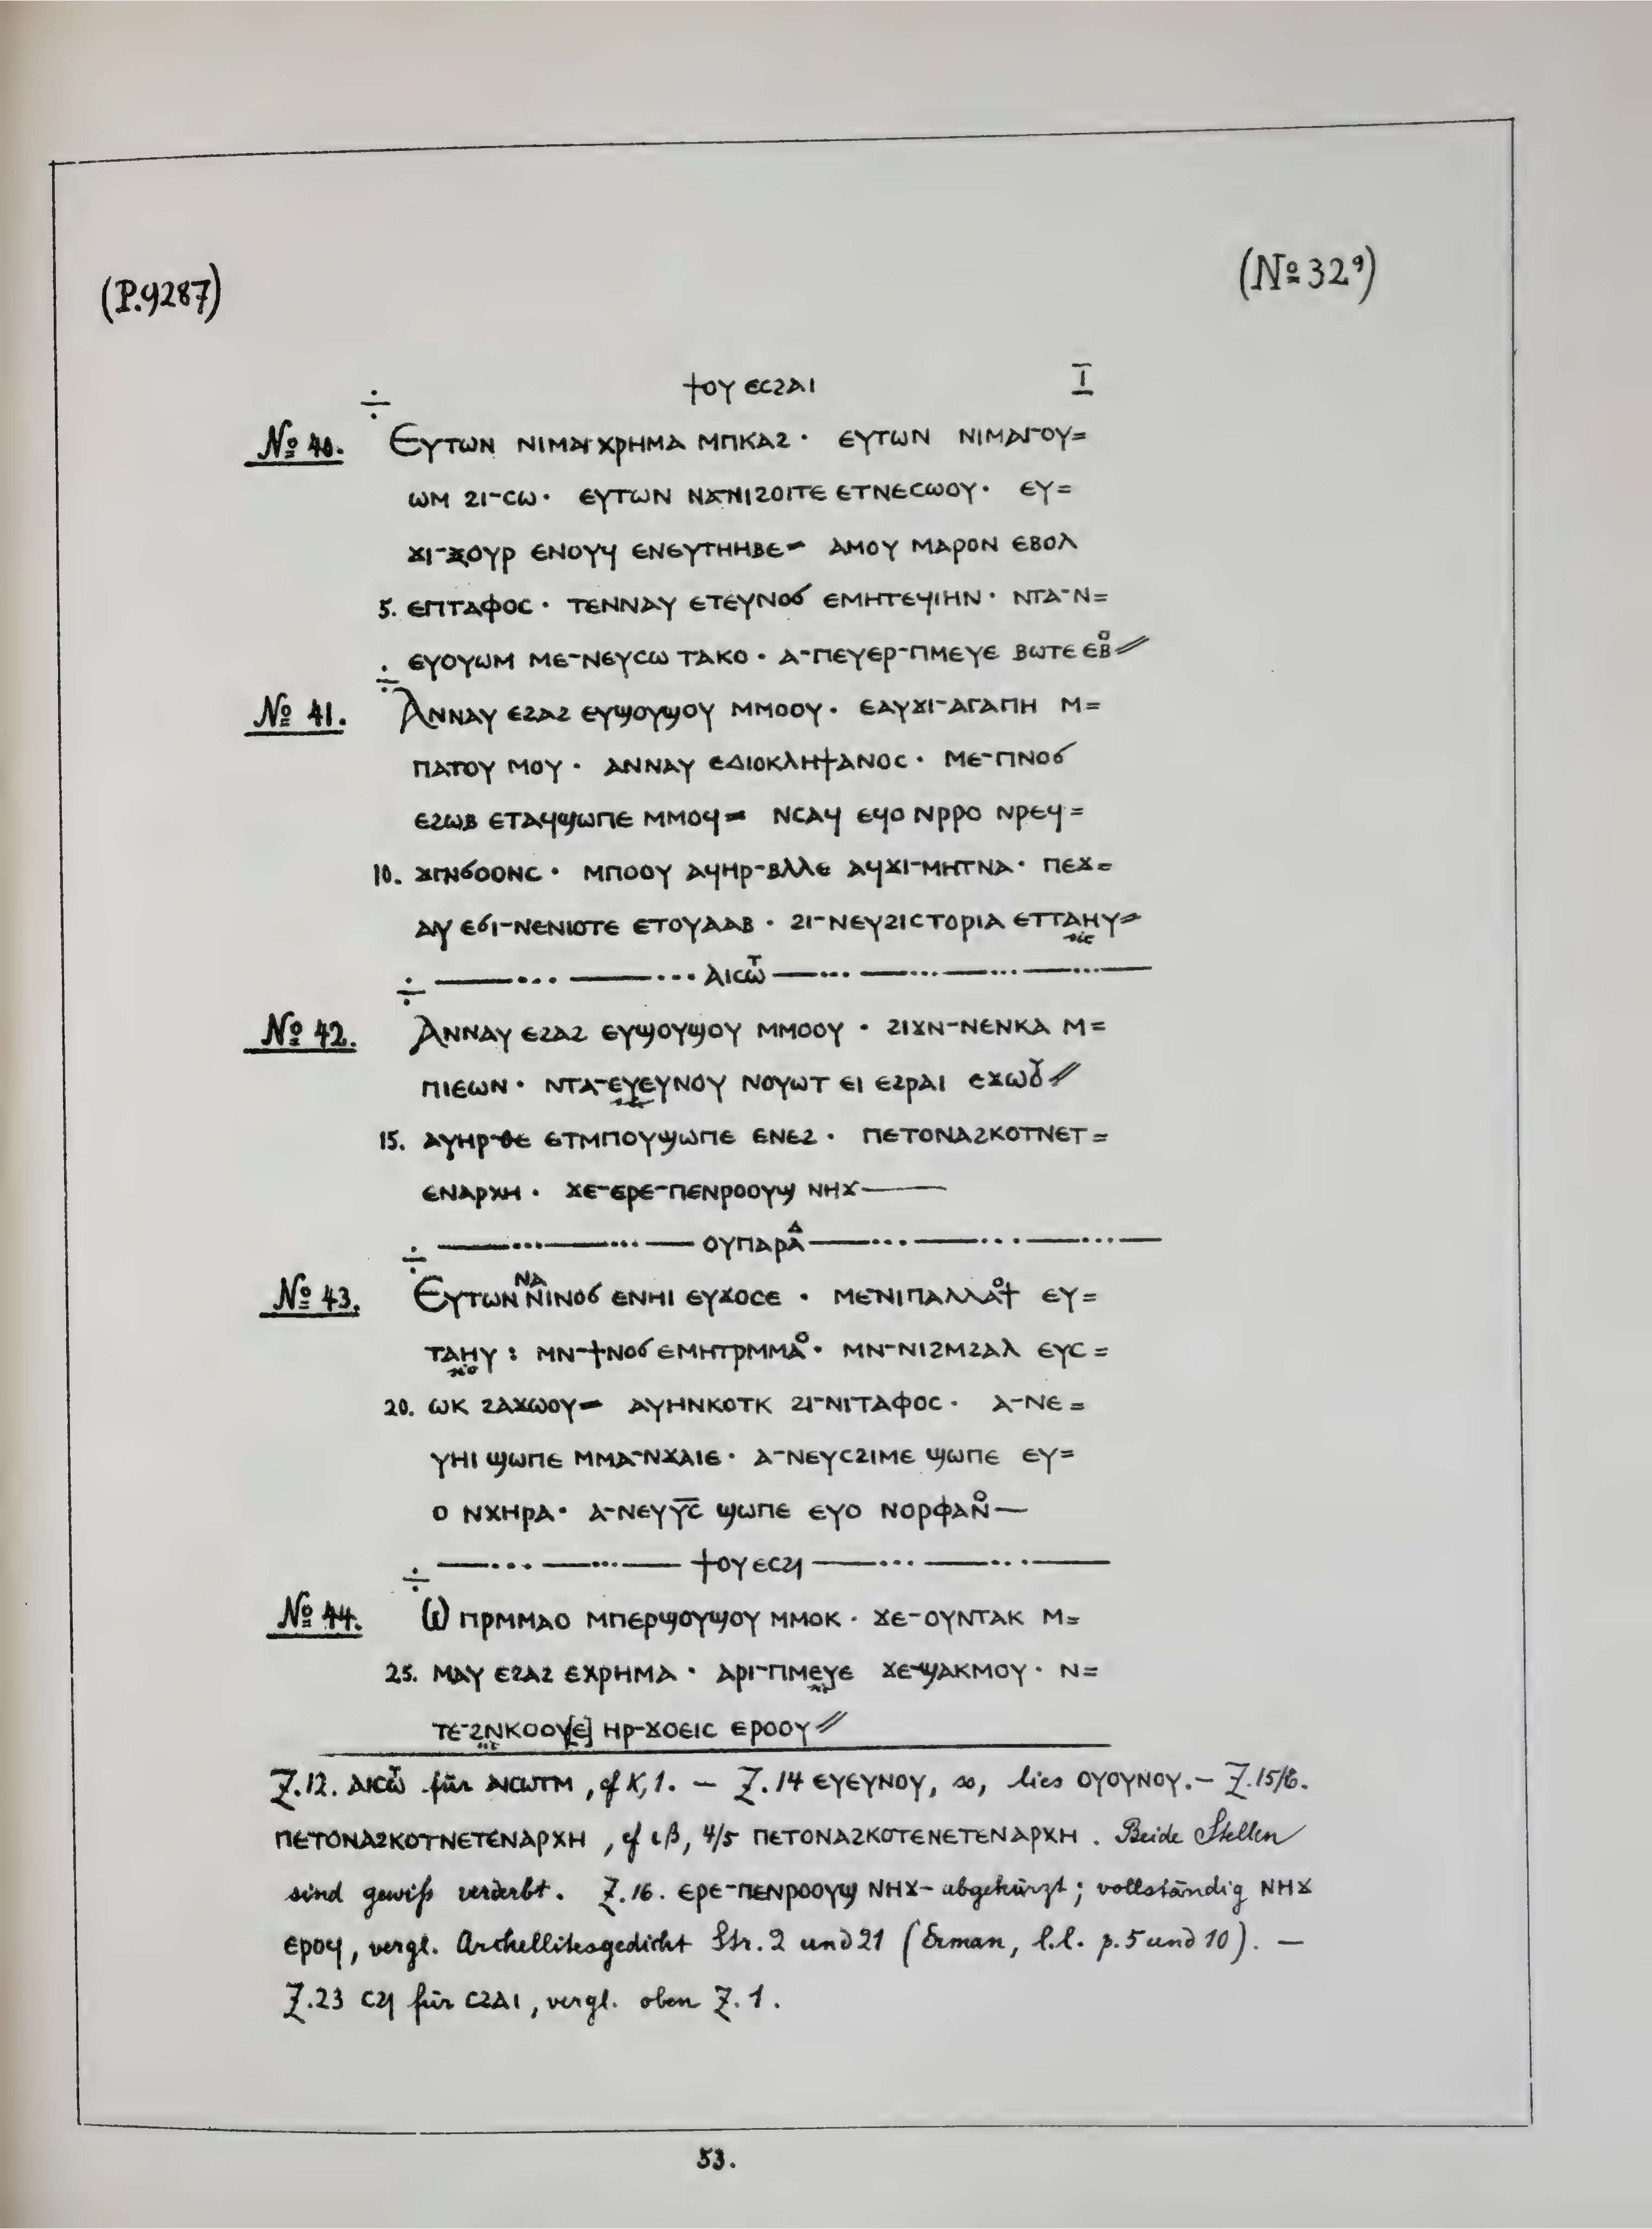 (P.9287)
(№ 32⁹)
ϯⲟⲩ ⲉⲥϩⲁⲓ I
№ 40. Ⲉⲩⲧⲱⲛ ⲛⲓⲙⲁⲓ̈ⲭⲣⲏⲙⲁ ⲙⲡⲕⲁϩ · ⲉⲩⲧⲱⲛ ⲛⲓⲙⲁⲓ̈ⲟⲩ=
ⲱⲙ ϩⲓ-ⲥⲱ · ⲉⲩⲧⲱⲛ ⲛϫⲛⲓϩⲟⲓⲧⲉ ⲉⲧⲛⲉⲥⲱⲟⲩ · ⲉⲩ=
ϫⲓ-ϫⲟⲩⲣ ⲉⲛⲟⲩϥ ⲉⲛⲉⲩⲧⲏⲏⲃⲉ- ⲁⲙⲟⲩ ⲙⲁⲣⲟⲛ ⲉⲃⲟⲗ
5. ⲉⲡⲧⲁⲫⲟⲥ · ⲧⲉⲛⲛⲁⲩ ⲉⲧⲉⲩⲛⲟϭ ⲉⲙⲏⲧⲉϥⲓⲏⲛ · ⲛⲧⲁ-ⲛ=
ⲉⲩⲟⲩⲱⲙ ⲙⲉ-ⲛⲉⲩⲥⲱ ⲧⲁⲕⲟ · ⲁ-ⲡⲉⲩⲉⲣ-ⲡⲙⲉⲩⲉ ⲃⲱⲧⲉ ⲉⲃⲟ⫽
№ 41. Ⲁⲛⲛⲁⲩ ⲉϩⲁϩ ⲉⲩϣⲟⲩϣⲟⲩ ⲙⲙⲟⲟⲩ · ⲉⲁⲩϫⲓ-ⲁⲅⲁⲡⲏ ⲙ=
ⲡⲁⲧⲟⲩ ⲙⲟⲩ · ⲁⲛⲛⲁⲩ ⲉⲇⲓⲟⲕⲗⲏϯⲁⲛⲟⲥ · ⲙⲉ-ⲡⲛⲟϭ
ⲉϩⲱⲃ ⲉⲧⲁϥϣⲱⲡⲉ ⲙⲙⲟϥ= ⲛⲥⲁϥ ⲉϥⲟ ⲛⲣⲣⲟ ⲛⲣⲉϥ=
10. ϫⲓⲛϭⲟⲟⲛⲥ · ⲙⲡⲟⲟⲩ ⲁϥⲏⲣ-ⲃⲗⲗⲉ ⲁϥϫⲓ-ⲙⲏⲧⲛⲁ · ⲡⲉϫ=
ⲁⲩ ⲉϭⲓ-ⲛⲉⲛⲓⲟⲧⲉ ⲉⲧⲟⲩⲁⲁⲃ · ϩⲓ-ⲛⲉⲩϩⲓⲥⲧⲟⲣⲓⲁ ⲉⲧⲧⲁⲏⲩ=
sic
÷ ——··· ——··· ⲁⲓⲥⲱⲧ̄ ——··· ——··· ——··· ——
№ 42. Ⲁⲛⲛⲁⲩ ⲉϩⲁϩ ⲉⲩϣⲟⲩϣⲟⲩ ⲙⲙⲟⲟⲩ · ϩⲓϫⲛ-ⲛⲉⲛⲕⲁ ⲙ=
ⲡⲓⲉⲱⲛ · ⲛⲧⲁ-ⲉⲩⲉⲩⲛⲟⲩ ⲛⲟⲩⲱⲧ ⲉⲓ ⲉϩⲣⲁⲓ ⲉϫⲱⲟⲩ⫽
sic
15. ⲁⲩⲏⲣ-ⲑⲉ ⲉⲧⲙⲡⲟⲩϣⲱⲡⲉ ⲉⲛⲉϩ · ⲡⲉⲧⲟⲛⲁϩⲕⲟⲧⲛⲉⲧ=
ⲉⲛⲁⲣⲭⲏ · ϫⲉ-ⲉⲣⲉ-ⲡⲉⲛⲣⲟⲟⲩϣ ⲛⲏϫ——
÷ ——··· ——··· —— ⲟⲩⲡⲁⲣⲁⲇ ——··· ——··· ——··· ——
№ 43. Ⲉⲩⲧⲱⲛ ⲛⲁⲛⲓⲛⲟϭ ⲉⲛⲏⲓ ⲉⲩϫⲟⲥⲉ · ⲙⲉⲛⲓⲡⲁⲗⲗⲁⲟϯ ⲉⲩ=
ⲧⲁⲏⲩ : ⲙⲛ-ϯⲛⲟϭ ⲉⲙⲏⲧⲣⲙⲙⲁⲟ · ⲙⲛ-ⲛⲓϩⲙϩⲁⲗ ⲉⲩⲥ=
sic
20. ⲱⲕ ϩⲁϫⲱⲟⲩ= ⲁⲩⲏⲛⲕⲟⲧⲕ ϩⲓ-ⲛⲓⲧⲁⲫⲟⲥ · ⲁ-ⲛⲉ=
ⲩⲏⲓ ϣⲱⲡⲉ ⲙⲙⲁ-ⲛϫⲁⲓⲉ · ⲁ-ⲛⲉⲩⲥϩⲓⲙⲉ ϣⲱⲡⲉ ⲉⲩ=
ⲟ ⲛⲭⲏⲣⲁ · ⲁ-ⲛⲉⲩⲩ̅ⲥ̅ ϣⲱⲡⲉ ⲉⲩⲟ ⲛⲟⲣⲫⲁⲛⲟ—
÷ ——··· ——··· —— ϯⲟⲩ ⲉⲥϩϥ ——··· ——··· ——
№ 44. Ⲱ ⲡⲣⲙⲙⲁⲟ ⲙⲡⲉⲣϣⲟⲩϣⲟⲩ ⲙⲙⲟⲕ · ϫⲉ-ⲟⲩⲛⲧⲁⲕ ⲙ=
25. ⲙⲁⲩ ⲉϩⲁϩ ⲉⲭⲣⲏⲙⲁ · ⲁⲣⲓ-ⲡⲙⲉⲩⲉ ϫⲉ-ϣⲁⲕⲙⲟⲩ · ⲛ=
sic
ⲧⲉ-ϩⲛⲕⲟⲟⲩ[ⲉ] ⲏⲣ-ϫⲟⲉⲓⲥ ⲉⲣⲟⲟⲩ⫽
sic
Z.12. ⲁⲓⲥⲱⲧ̄ für ⲁⲓⲥⲱⲧⲙ, cf K,1. — Z.14 ⲉⲩⲉⲩⲛⲟⲩ, so, lies ⲟⲩⲟⲩⲛⲟⲩ. — Z.15/6.
ⲡⲉⲧⲟⲛⲁϩⲕⲟⲧⲛⲉⲧⲉⲛⲁⲣⲭⲏ, cf ιβ, 4/5 ⲡⲉⲧⲟⲛⲁϩⲕⲟⲧⲉⲛⲉⲧⲉⲛⲁⲣⲭⲏ. Beide Stellen
sind gewiß verderbt. Z.16. ⲉⲣⲉ-ⲡⲉⲛⲣⲟⲟⲩϣ ⲛⲏϫ- abgekürzt; vollständig ⲛⲏϫ
ⲉⲣⲟϥ, vergl. Archellitesgedicht Str. 2 und 21 (Erman, l.l. p. 5 und 10). —
Z.23 ⲥϩϥ für ⲥϩⲁⲓ, vergl. oben Z. 1.
53.